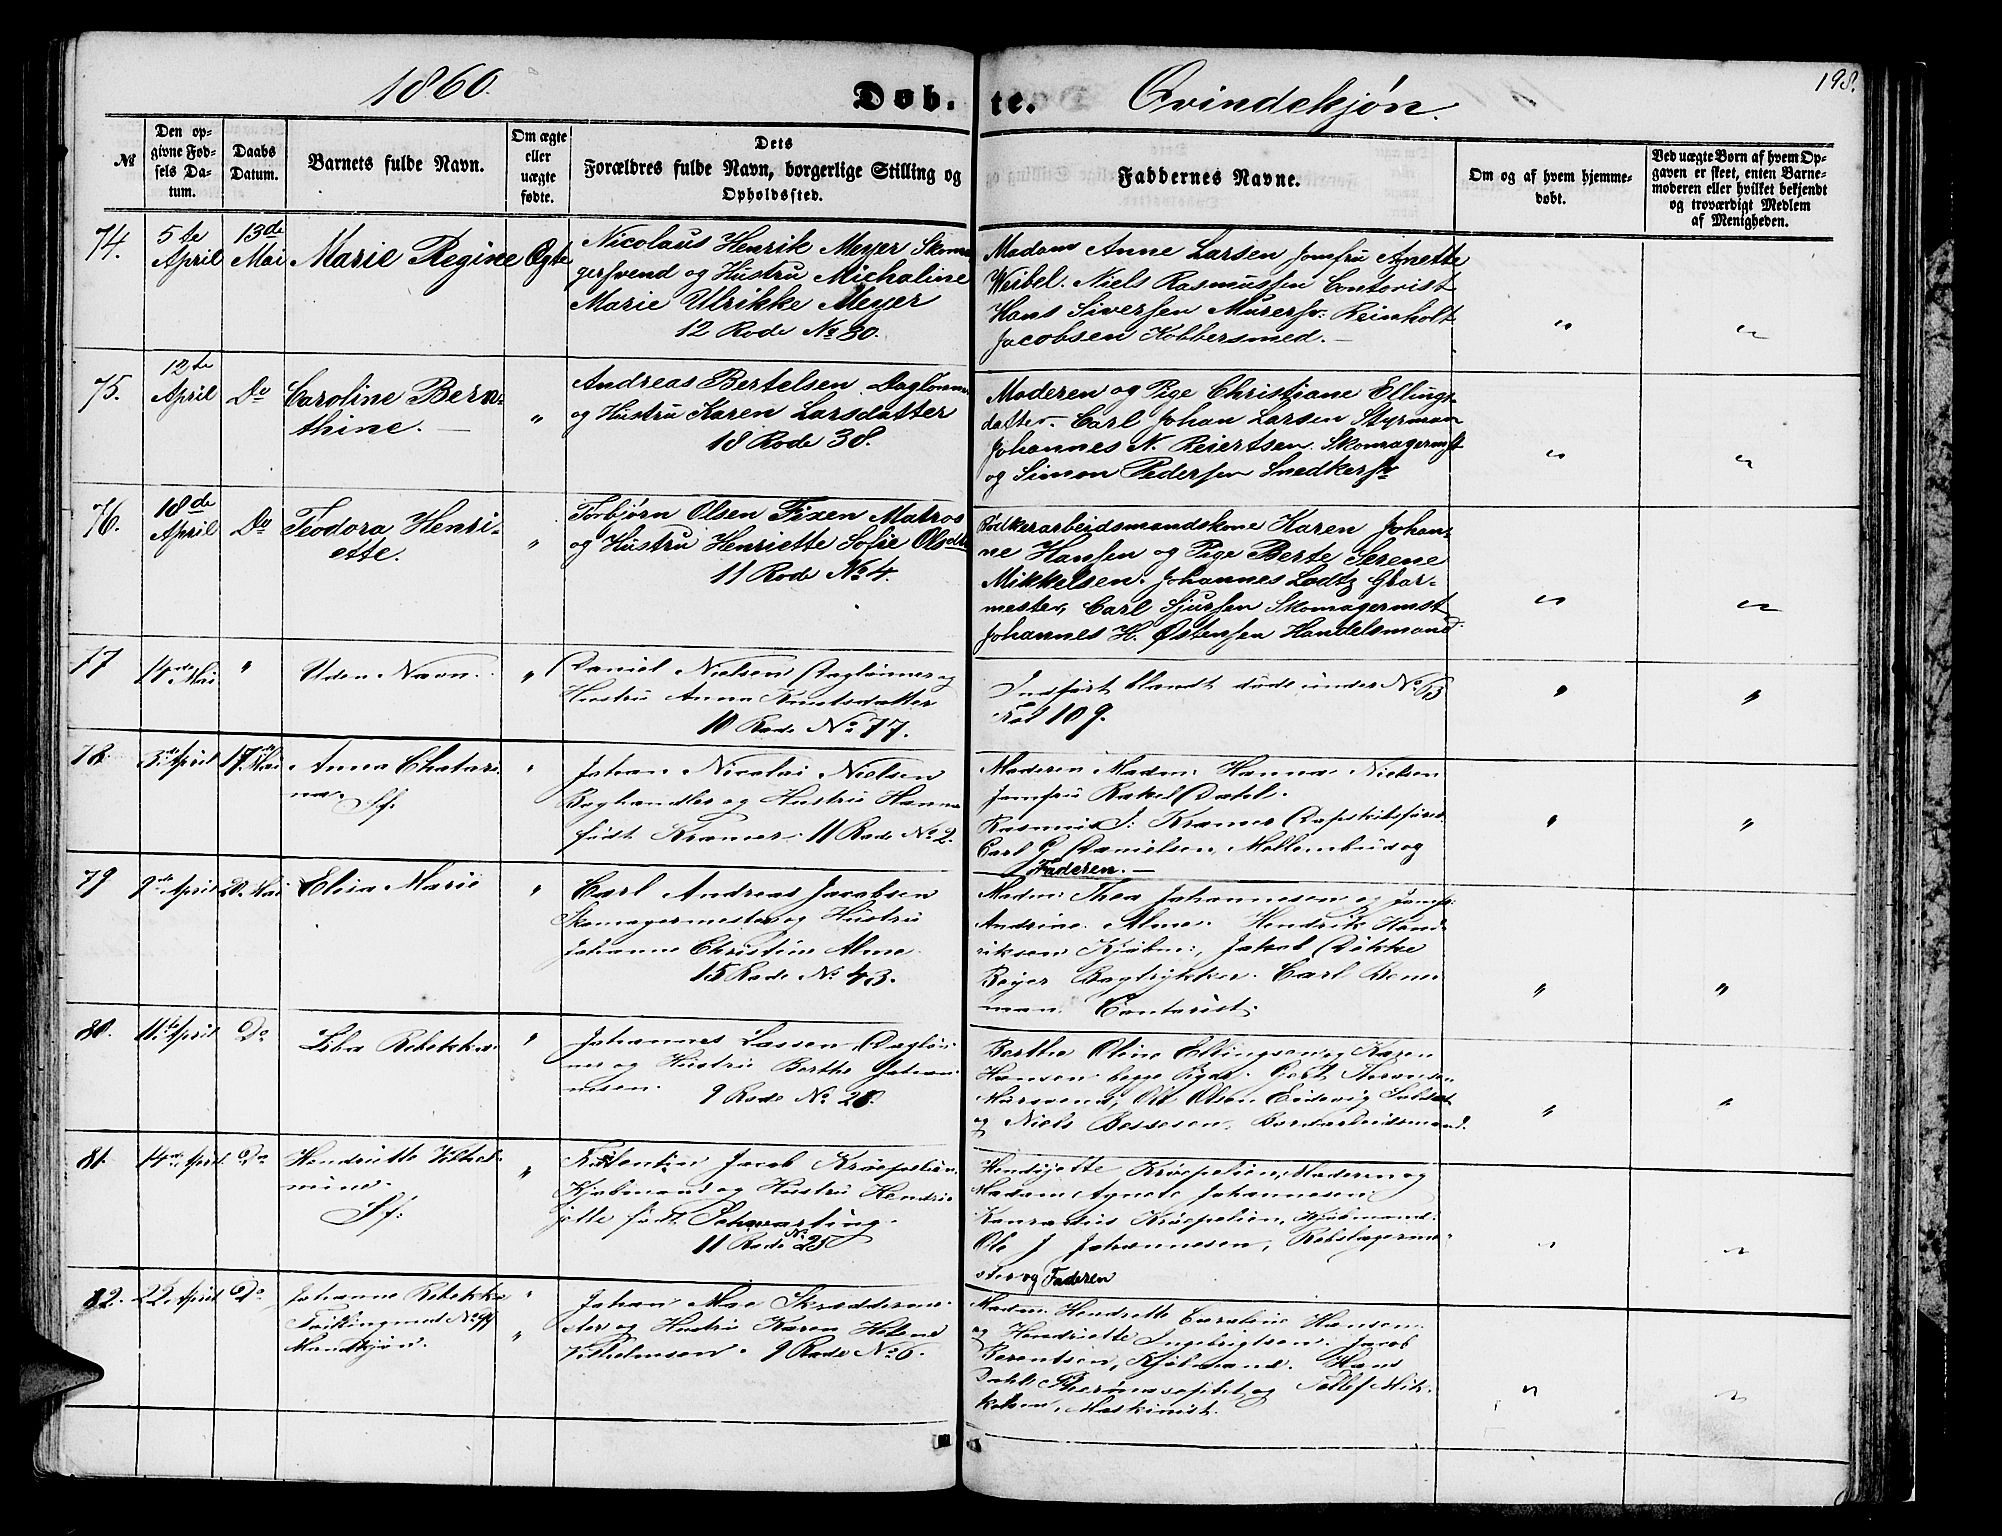 1860.
Døb-
te.
Qvindekjøn.
198.
№
Den op-
givne Fød-
sels Da-
tum.
Daabs
Datum.
Barnets fulde Navn.
Om ægte
eller
uægte
fødte.
Dets
Forældres fulde Navn, borgerlige Stilling og
Opholdssted.
Faddernes Navne.
Om og af hvem hjemme-
døbt.
Ved uægte Børn af hvem Op-
gaven er skeet, enten Barne-
moderen eller hvilket bekjendt
og troværdigt Medlem
af Menigheden.
74.
5te
April
13de
Mai
Marie Regine
Ægte
Nicolaus Henrik Meyer Skoma
gersvend og Hustru Michaline
Marie Ulrikke Meyer
12 Rode No 30.
Madam Anne Larsen Jomfru Agnette
Weibel. Niels Rasmussen Contorist
Hans Siversen Murersv. Reinholt
Jacobsen Kobbersmed. —
"
"
75.
12te
April
Do
Caroline Bern-
thine. —
"
Andreas Bertelsen Daglønner
og Hustru Karen Larsdatter
18 Rode 38.
Moderen og Pige Christiane Ellings-
datter. Carl Johan Larsen Styrman
Johannes N. Reiertsen. Skomagermst
og Simon Pedersen Snedkersv
"
"
76.
18de
April
Do
Teodora Henri-
ette.
"
Torbjørn Olsen Fixen Matros
og Hustru Henriette Sofie Olsdtr
11 Rode No 4.
Bødkerarbeidsmandskone Karen Johan-
ne Hansen og Pige Berte Serene
Mikkelsen. Johannes Lodtz Glar-
mester, Carl Sjursen Skomagermst
Johannes H. Østensen Handelsmand.
"
"
77
14de Mai
"
Uden Navn.
"
Daniel Nielsen Daglønner og
Hustru Anna Knutsdatter
10 Rode No 77.
Indført blandt døde under No 63
Fol 109.
"
"
78.
3de April
17de Mai
Anna Chatari
na.
Sf.
"
Johan Nicolai Nielsen
Boghandler og Hustru Hanna
født Kramer. 11 Rode No 2.
Moderen Madm. Hanna Nielsen
Jomfru Rakel Dahl.
Rasmus J. Kramer Dampskibsfører
Carl G Danielsen, og
Faderen. —
"
"
79
9de April
20. Mai
Elisa Marie
"
Carl Andreas Jacobsen
Skomagermester og Hustru
Johanne Christine Alme.
15 Rode No 43.
Madm. Thea Johannesen og Jomfr.
Andrine Alme. Hendrik Hend
riksen Kjøbm., Jakob Dekke
Beyer Bogtrykker. Carl Bene
man. Contorist.
"
"
80.
11te April
Do
Lisa Rebekka.
"
Johannes Lassen, Dagløn-
ner og Hustru Berthe Johan
nesen.
9 Rode No 28.
Berthe Oline Ellingsen og Karen
Hansen begge Piger. Gert
Mursvend, Ole Olsen
og Niels Bessesen, Bordarbeidsmand.
"
"
81.
14de April
Do
Hendriette Vilhel
mine.
Sf.
"
Jacob Krøepelien,
Kjøbmand og Hustru Hendri
jette født Schwarting.
11 Rode No 25
Hendrjette Krøepelien, Moderen og
Madam Agnete Johannesen.
Konradus Krøepelien, Kjøbmand.
Ole J Johannesen, Rebslagerme-
ster og Faderen
"
"
82.
22. April
Do
Johanne Rebekka
Tvilling med No 99
Mandkjøn.
"
"
Johan Moe Skrædderme-
ster og Hustru Karen Helene
Vilhelmsen. 9 Rode No 6.
Madm. Hendrette Caroline Hansen.
og Hendriette Ingebrigtsen. Jacob
Berentsen, Kjøbmand. Hans
Dahl og Tollef Mik-
kelsen, Maskinist.
"
"